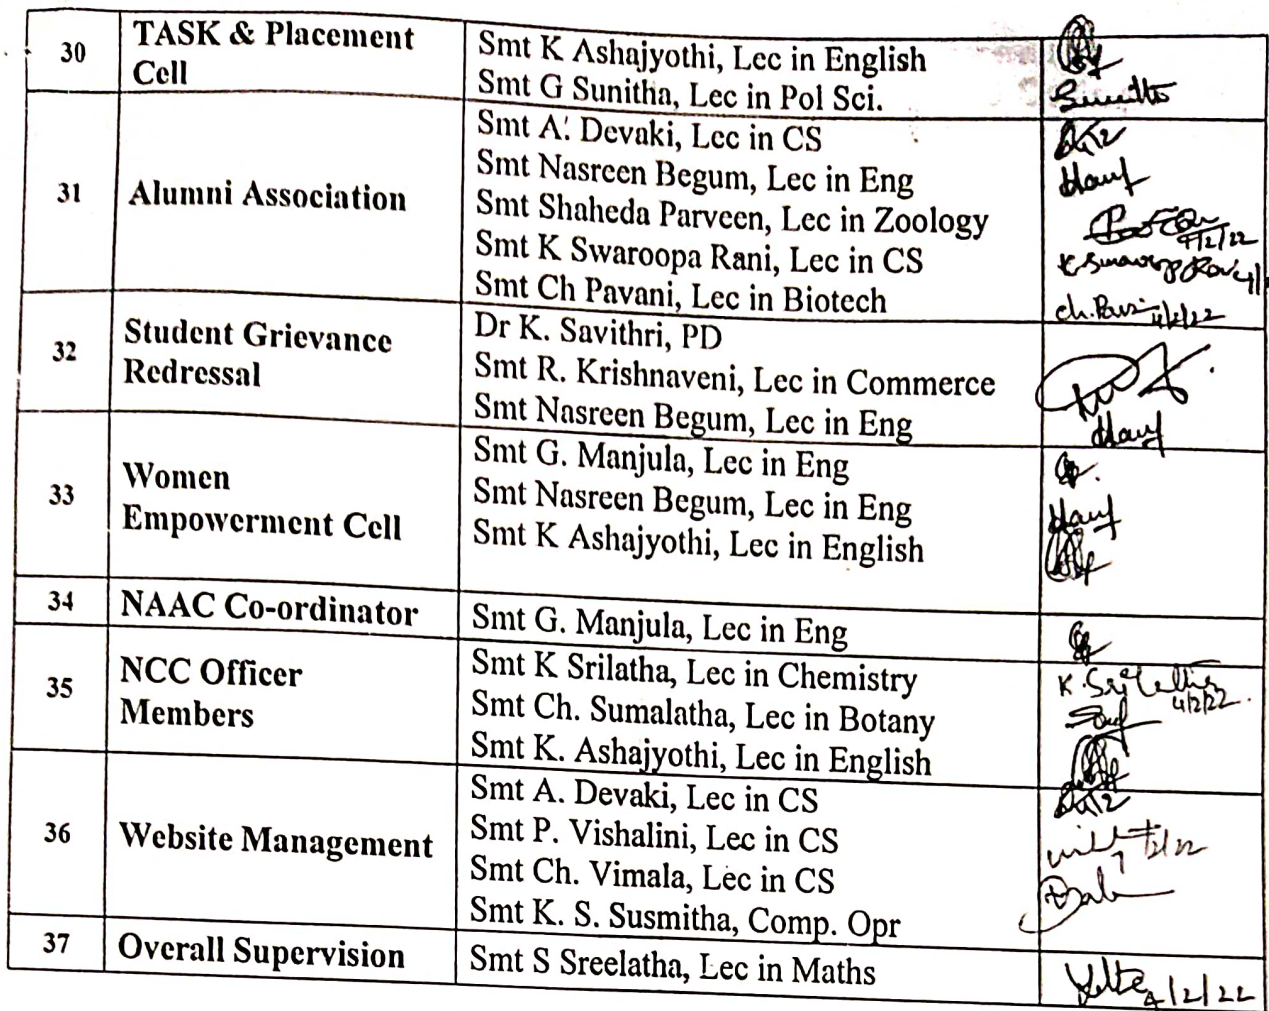 30 TASK & Placement Cell
Smt K Ashajyothi, Lec in English
Smt G Sunitha, Lec in Pol Sci.
Sunitha
31 Alumni Association
Smt A. Devaki, Lec in CS
Smt Nasreen Begum, Lec in Eng
Smt Shaheda Parveen, Lec in Zoology
4/2/22
Smt K Swaroopa Rani, Lec in CS
K. Swaroop Rani 4/
Smt Ch Pavani, Lec in Biotech
ch. Pavani 4/2/22
32 Student Grievance Redressal
Dr K. Savithri, PD
Smt R. Krishnaveni, Lec in Commerce
Smt Nasreen Begum, Lec in Eng
33 Women Empowerment Cell
Smt G. Manjula, Lec in Eng
Smt Nasreen Begum, Lec in Eng
Smt K Ashajyothi, Lec in English
34 NAAC Co-ordinator
Smt G. Manjula, Lec in Eng
35 NCC Officer Members
Smt K Srilatha, Lec in Chemistry
K. Srilatha 4/2/22
Smt Ch. Sumalatha, Lec in Botany
Smt K. Ashajyothi, Lec in English
36 Website Management
Smt A. Devaki, Lec in CS
Smt P. Vishalini, Lec in CS
Smt Ch. Vimala, Lec in CS
Smt K. S. Susmitha, Comp. Opr
37 Overall Supervision
Smt S Sreelatha, Lec in Maths
4/2/22